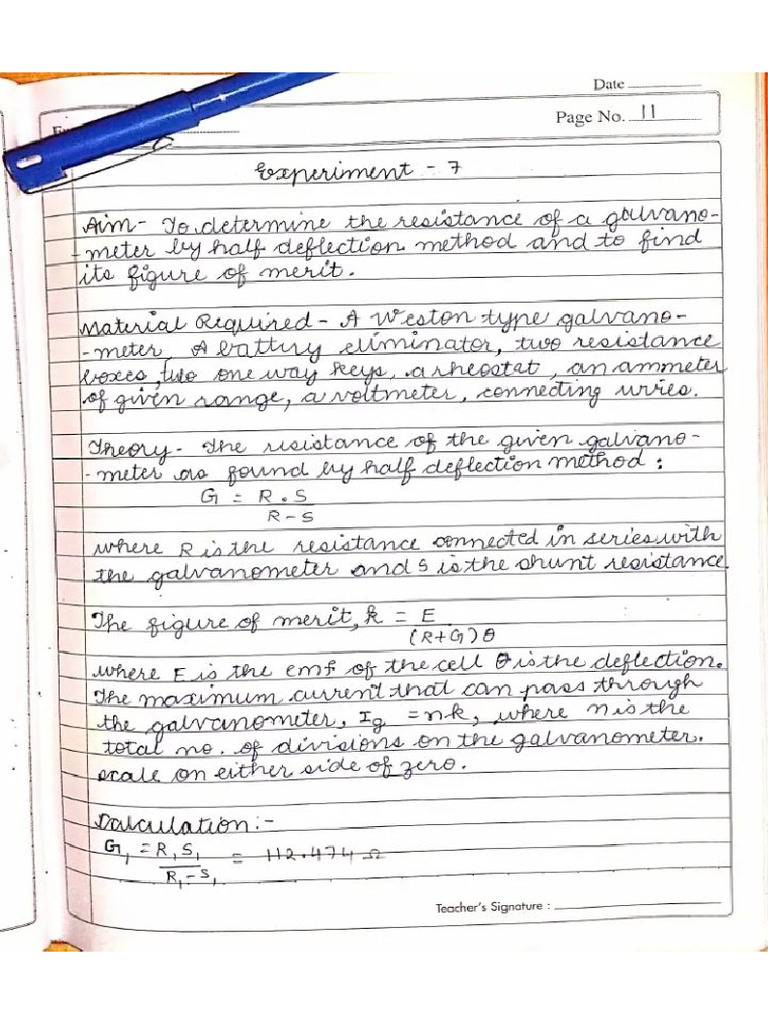 Date
Page No. 11
Experiment - 7
Aim - To determine the resistance of a galvano-
-meter by half deflection method and to find
its figure of merit.
Material Required - A Weston type galvano-
-meter, A battery eliminator, two resistance
boxes, two one way keys, a rheostat, an ammeter
of given range, a voltmeter, connecting wries.
Theory - The resistance of the given galvano-
-meter as found by half deflection method :
G = R . S
R - S
where R is the resistance connected in series with
the galvanometer and S is the shunt resistance
The figure of merit, k = E
(R+G)θ
where E is the emf of the cell θ is the deflection.
The maximum current that can pass through
the galvanometer, Ig = nk, where n is the
total no. of divisions on the galvanometer.
scale on either side of zero.
Calculation :-
G₁ = R₁S₁ = 112.474 Ω
R₁ - S₁
Teacher's Signature :